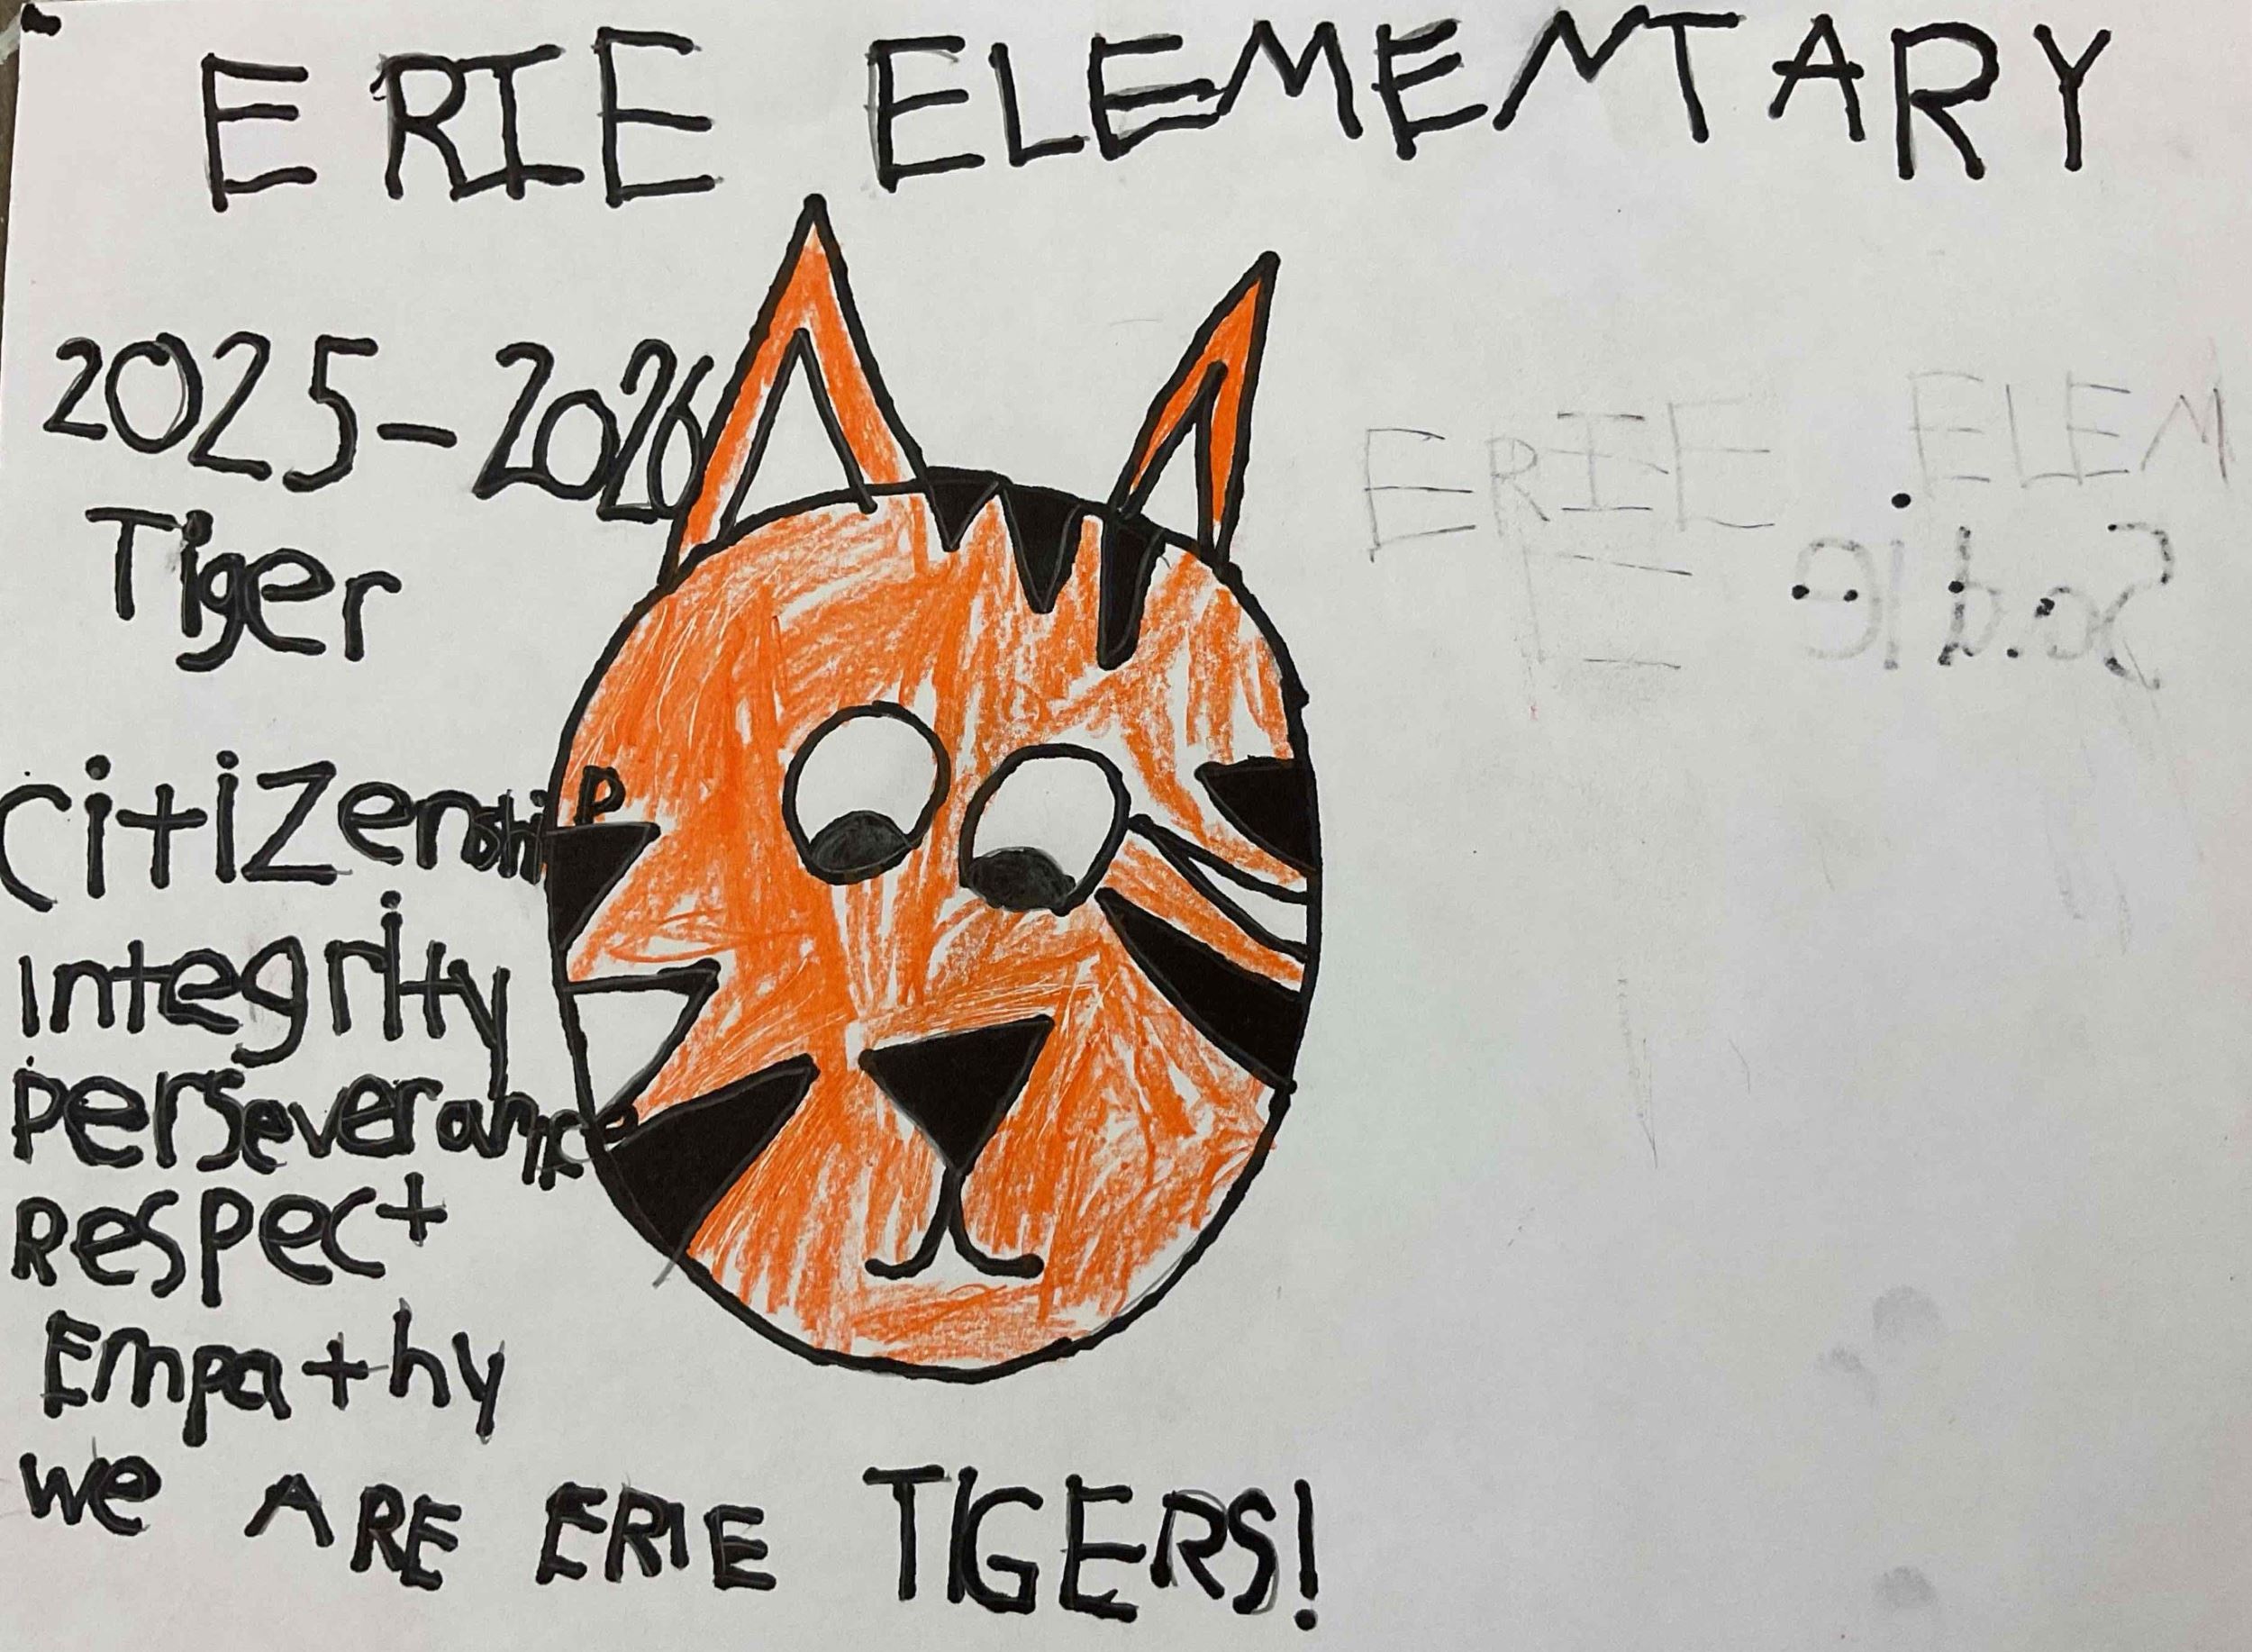 ERIE ELEMENTARY
2025-2026
Tiger
ERIE ELEM
Sadie
E
citizenship
integrity
perseverance
Respect
Empathy
we ARE ERIE TIGERS!